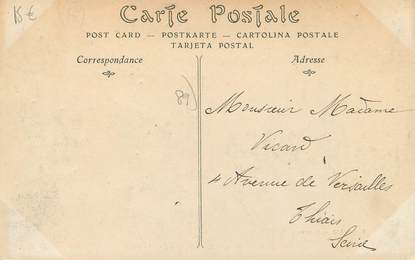 15 €
Carte Postale
POST CARD — POSTKARTE — CARTOLINA POSTALE
TARJETA POSTAL
Correspondance
Adresse
89
Monsieur Madame
Vicard
4 Avenue de Versailles
Thiais
Seine